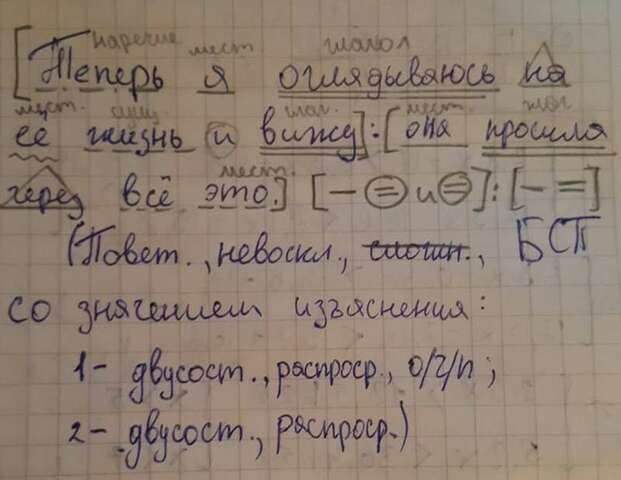 наречие мест. глагол
[Теперь я оглядываюсь на
мест. сущ. глаг. мест. глаг.
её жизнь и вижу]:[она прошла
мест.
через всё это.] [— = и =]:[— =]
(Повет., невоскл., сложн., БСП
со значением изъяснения:
1- двусост., распростр., о/ч/п;
2- двусост., распростр.)